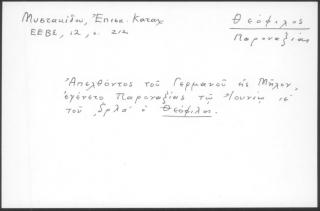 Μυστακίδου, Ἐπισκ. Κατάλ
ΕΕΒΣ, 12, σ. 212
Θεόφιλος
Παροναξίας
Ἀπελθόντος τοῦ Γερμανοῦ εἰς Μῆλον,
ἐγένετο Παροναξίας τῷ Ἰουνίῳ ιε΄
τοῦ ͵αψλδ΄ ὁ Θεόφιλος.